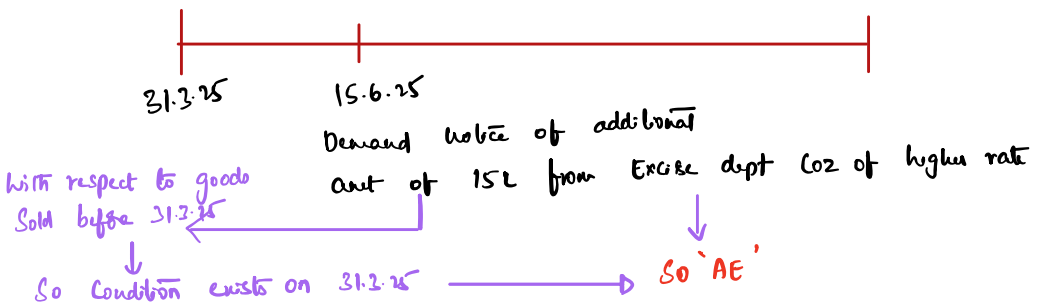 31.3.25
15.6.25
Demand notice of additional
amt of 15L from Excise dept Coz of higher rate
With respect to goods
Sold before 31.3.25
So 'AE'
So Condition exists on 31.3.25